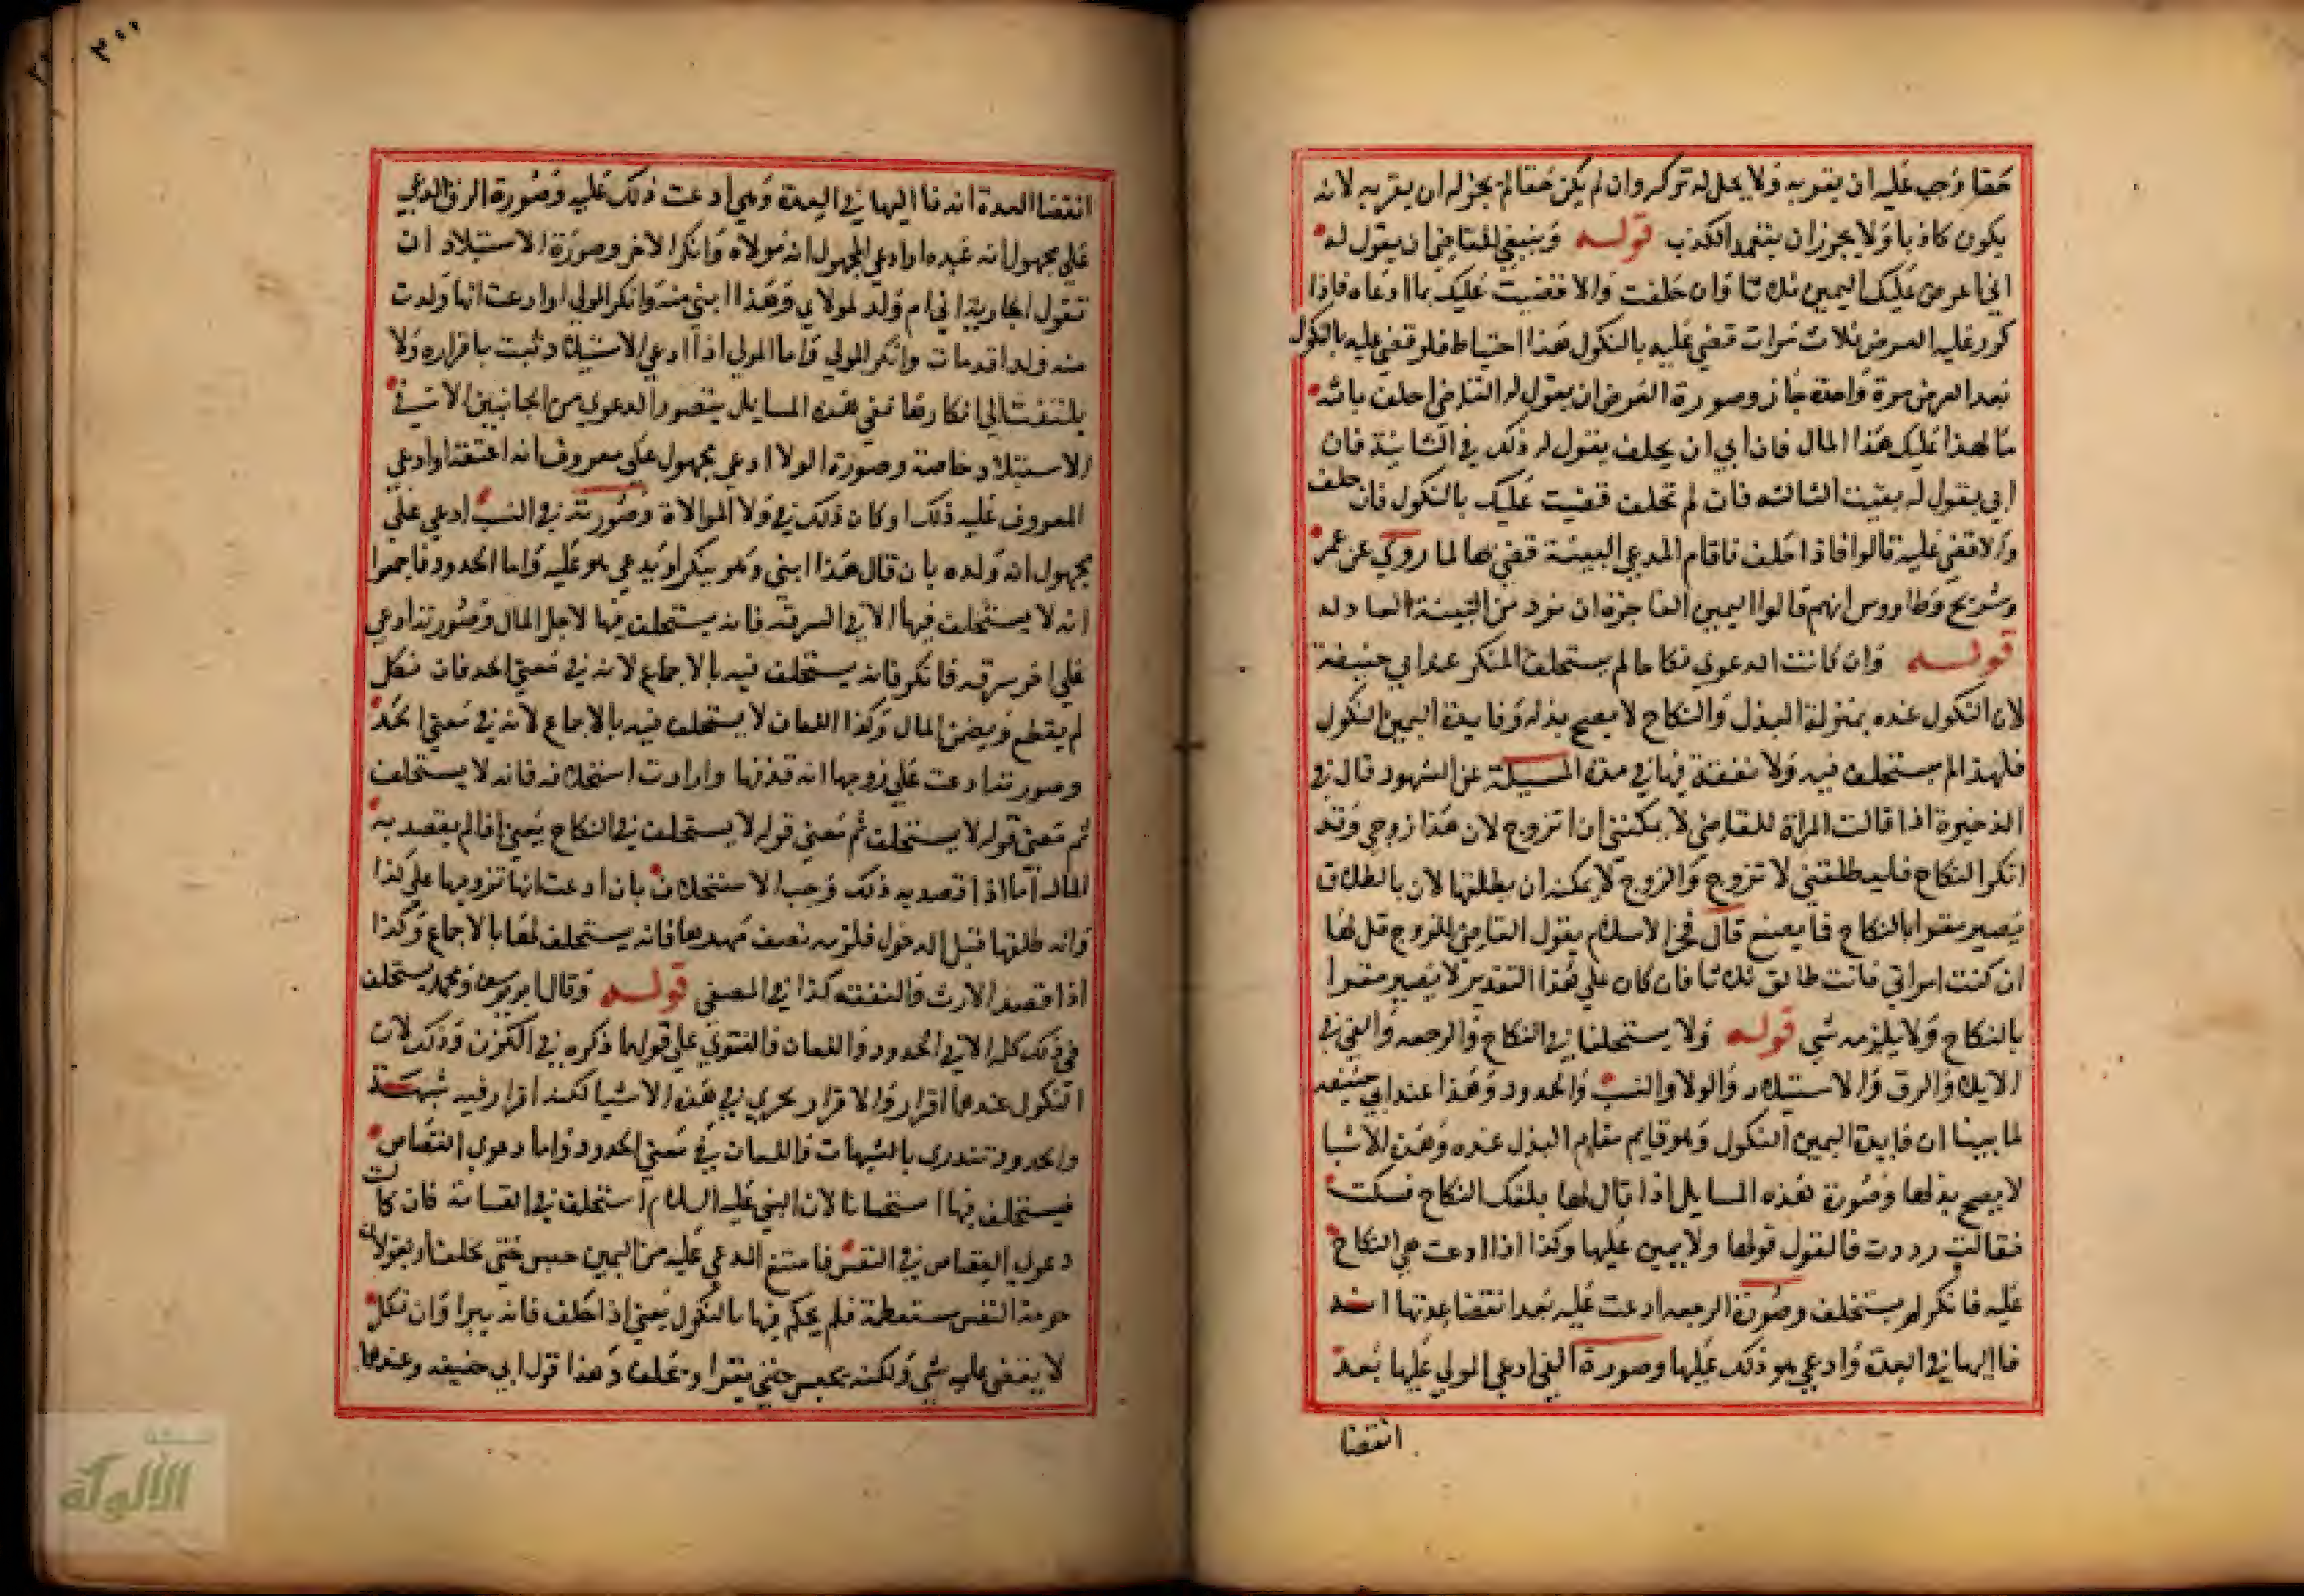 حقا وجب عليه ان يقر به ولا يحل له تركه وان لم يكن حقا لم يجز له ان يقر به لانه
يكون كاذبا ولا يجوز ان يتعمد الكذب قوله وينبغي للقاضي ان يقول له
اني اعرض عليك اليمين ثلاثا فان حلفت والا قضيت عليك بما ادعاه فاذا
كرر عليه العرض ثلاث مرات قضى عليه بالنكول هذا احتياط فلو قضى عليه بالنكول
بعد العرض مرة واحدة جاز وصورة العرض ان يقول له القاضي احلف بالله
ما لهذا عليك هذا المال فان ابي ان يحلف يقول له ذلك في الثانية فان
ابي يقول له بقيت الثالثه فان لم تحلف قضيت عليك بالنكول فان حلف
والا قضى عليه قالوا فاذا حلف فاقام المدعي البينة قضي بها لما روي عن عمر
وشريح وطاووس انهم قالوا اليمين الفاجرة ان ترد من البينة العادله
قوله وان كانت الدعوي نكاحا لم يستحلف المنكر عند ابي حنيفة
لان النكول عنده بمنزلة البذل والنكاح لا يصح بذله وفايدة اليمين النكول
فلهذا لم يستحلف فيه ولا نفقة لها في مدة المسيلة عن الشهود قال في
الذخيرة اذا قالت المراة للقاضي لا يمكنني ان اتزوج لان هذا زوجي وقد
انكر النكاح فليطلقني لاتزوج والزوج لا يمكنه ان يطلقها لان بالطلاق
يصير مقرا بالنكاح فما يصنع قال فخر الاسلام يقول القاضي للزوج قل لها
ان كنت امراتي فانت طالق ثلاثا فان كان علي هذا التقدير لا يصير مقرا
بالنكاح ولا يلزمه شي قوله ولا يستحلف في النكاح والرجعه والفي في
الايلا والرق والاستيلاد والولا والنسب والحدود وهذا عند ابي حنيفه
لما بينا ان فايدة اليمين النكول وهو قايم مقام البذل عنده وهذه الاشيا
لا يصح بذلها وصورة هذه المسايل اذا قال لها بلغك النكاح فسكت
فقالت رددت فالقول قولها ولا يمين عليها وكذا اذا ادعت هي النكاح
عليه فانكر لم يستحلف وصورة الرجعه ادعت عليه بعد انقضا عدتها انه
فا اليها في العدة وادعي هو ذلك عليها وصورة الفي ادعي المولي عليها بعد
انقضا
انقضا العدة انه فا اليها في العدة وهي ادعت ذلك عليه وصورة الرق ادعي
علي مجهول انه عبده او ادعي المجهول انه مولاه وانكر الاخر وصورة الاستيلاد ان
تقول الجارية اني ام ولد لمولاي وهذا ابني منه وانكر المولي او ادعت انها ولدت
منه ولدا قد مات وانكر المولي واما المولي اذا ادعي الاستيلاد ثبت باقراره ولا
يلتفت الي انكارها ففي هذه المسايل يتصور الدعوي من الجانبين الا في
الاستيلاد خاصة وصورة الولا ادعي مجهول علي معروف انه اعتقه او ادعي
المعروف عليه ذلك او كان ذلك في ولا الموالاة وصورته في النسب ادعي علي
مجهول انه ولده بان قال هذا ابني وهو ينكر او يدعي هو عليه واما الحدود فاجمعوا
انه لا يستحلف فيها الا في السرقه فانه يستحلف فيها لاجل المال وصورته ادعي
علي اخر سرقه فانكر فانه يستحلف فيه بالاجماع لانه في معني الحد فان نكل
لم يقطع ويضمن المال وكذا اللعان لا يستحلف فيه بالاجماع لانه في معني الحد
وصورته ادعت علي زوجها انه قذفها وارادت استحلافه فانه لا يستحلف
ثم معني قوله لا يستحلف ثم معني قوله لا يستحلف في النكاح يعني اذا لم يقصد به
المال اما اذا قصد به ذلك وجب الاستحلاف بان ادعت انه تزوجها علي كذا
وانه طلقها قبل الدخول فلزمه نصف مهرها فانه يستحلف لها بالاجماع وكذا
اذا قصد الارث والنفقه كذا في المصفي قوله وقال ابو يوسف ومحمد يستحلف
في ذلك كله الا في الحدود واللعان والفتوي علي قولهما ذكره في الكنز وذلك لان
النكول عندهما اقرار والاقرار يجري في هذه الاشيا لكنه اقرار فيه شبهة
والحدود تندري بالشبهات واللعان في معني الحدود واما دعوي القصاص
فيستحلف فيها استحسانا لان النبي عليه السلام استحلف في القسامة فان كانت
دعوي القصاص في النفس فامتنع المدعي عليه من اليمين حبس حتي يحلف او يقر لان
حرمة النفس مستعظمة فلم يحكم فيها بالنكول يعني اذا حلف فانه يبرا وان نكل
لا يقضي عليه بشي ولكنه يحبس حتي يقر او يحلف وهذا قول ابي حنيفه وعندهما
٣٠٠
الألوكة